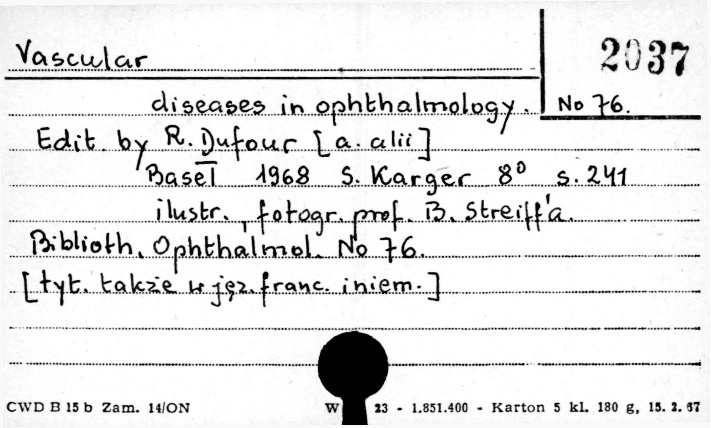 Vascular
2037
diseases in ophthalmology.
No 76.
Edit. by R. Dufour [a. alii]
Basel 1968 S. Karger 8° s. 241
ilustr., fotogr. prof. B. Streiff'a.
Biblioth. Ophthalmol. No 76.
[tyt. także w jęz. franc. i niem.]
CWD B 15 b Zam. 14/ON W 23 - 1.851.400 - Karton 5 kl. 180 g, 15. 2. 67